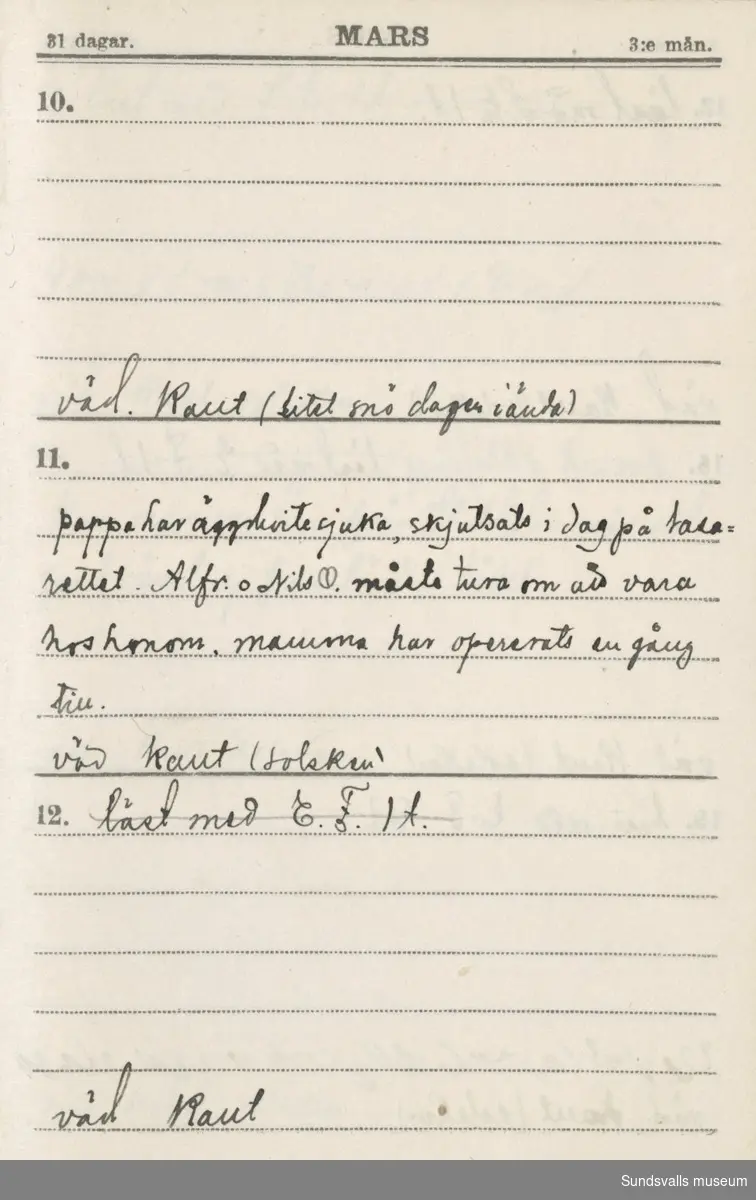 31 dagar. MARS 3:e mån.
10.
väd. Kaut (litet snö dagen i ända)
11.
pappa har äggvitesjuka, skjutsats i dag på lasa=
rettet. Alfr. o Nils O. måste tura om att vara
hos honom. mamma har opererats en gång
till.
väd kaut (solsken)
12. läst med E. F. 1 t.
väd Kaut
Sundsvalls museum